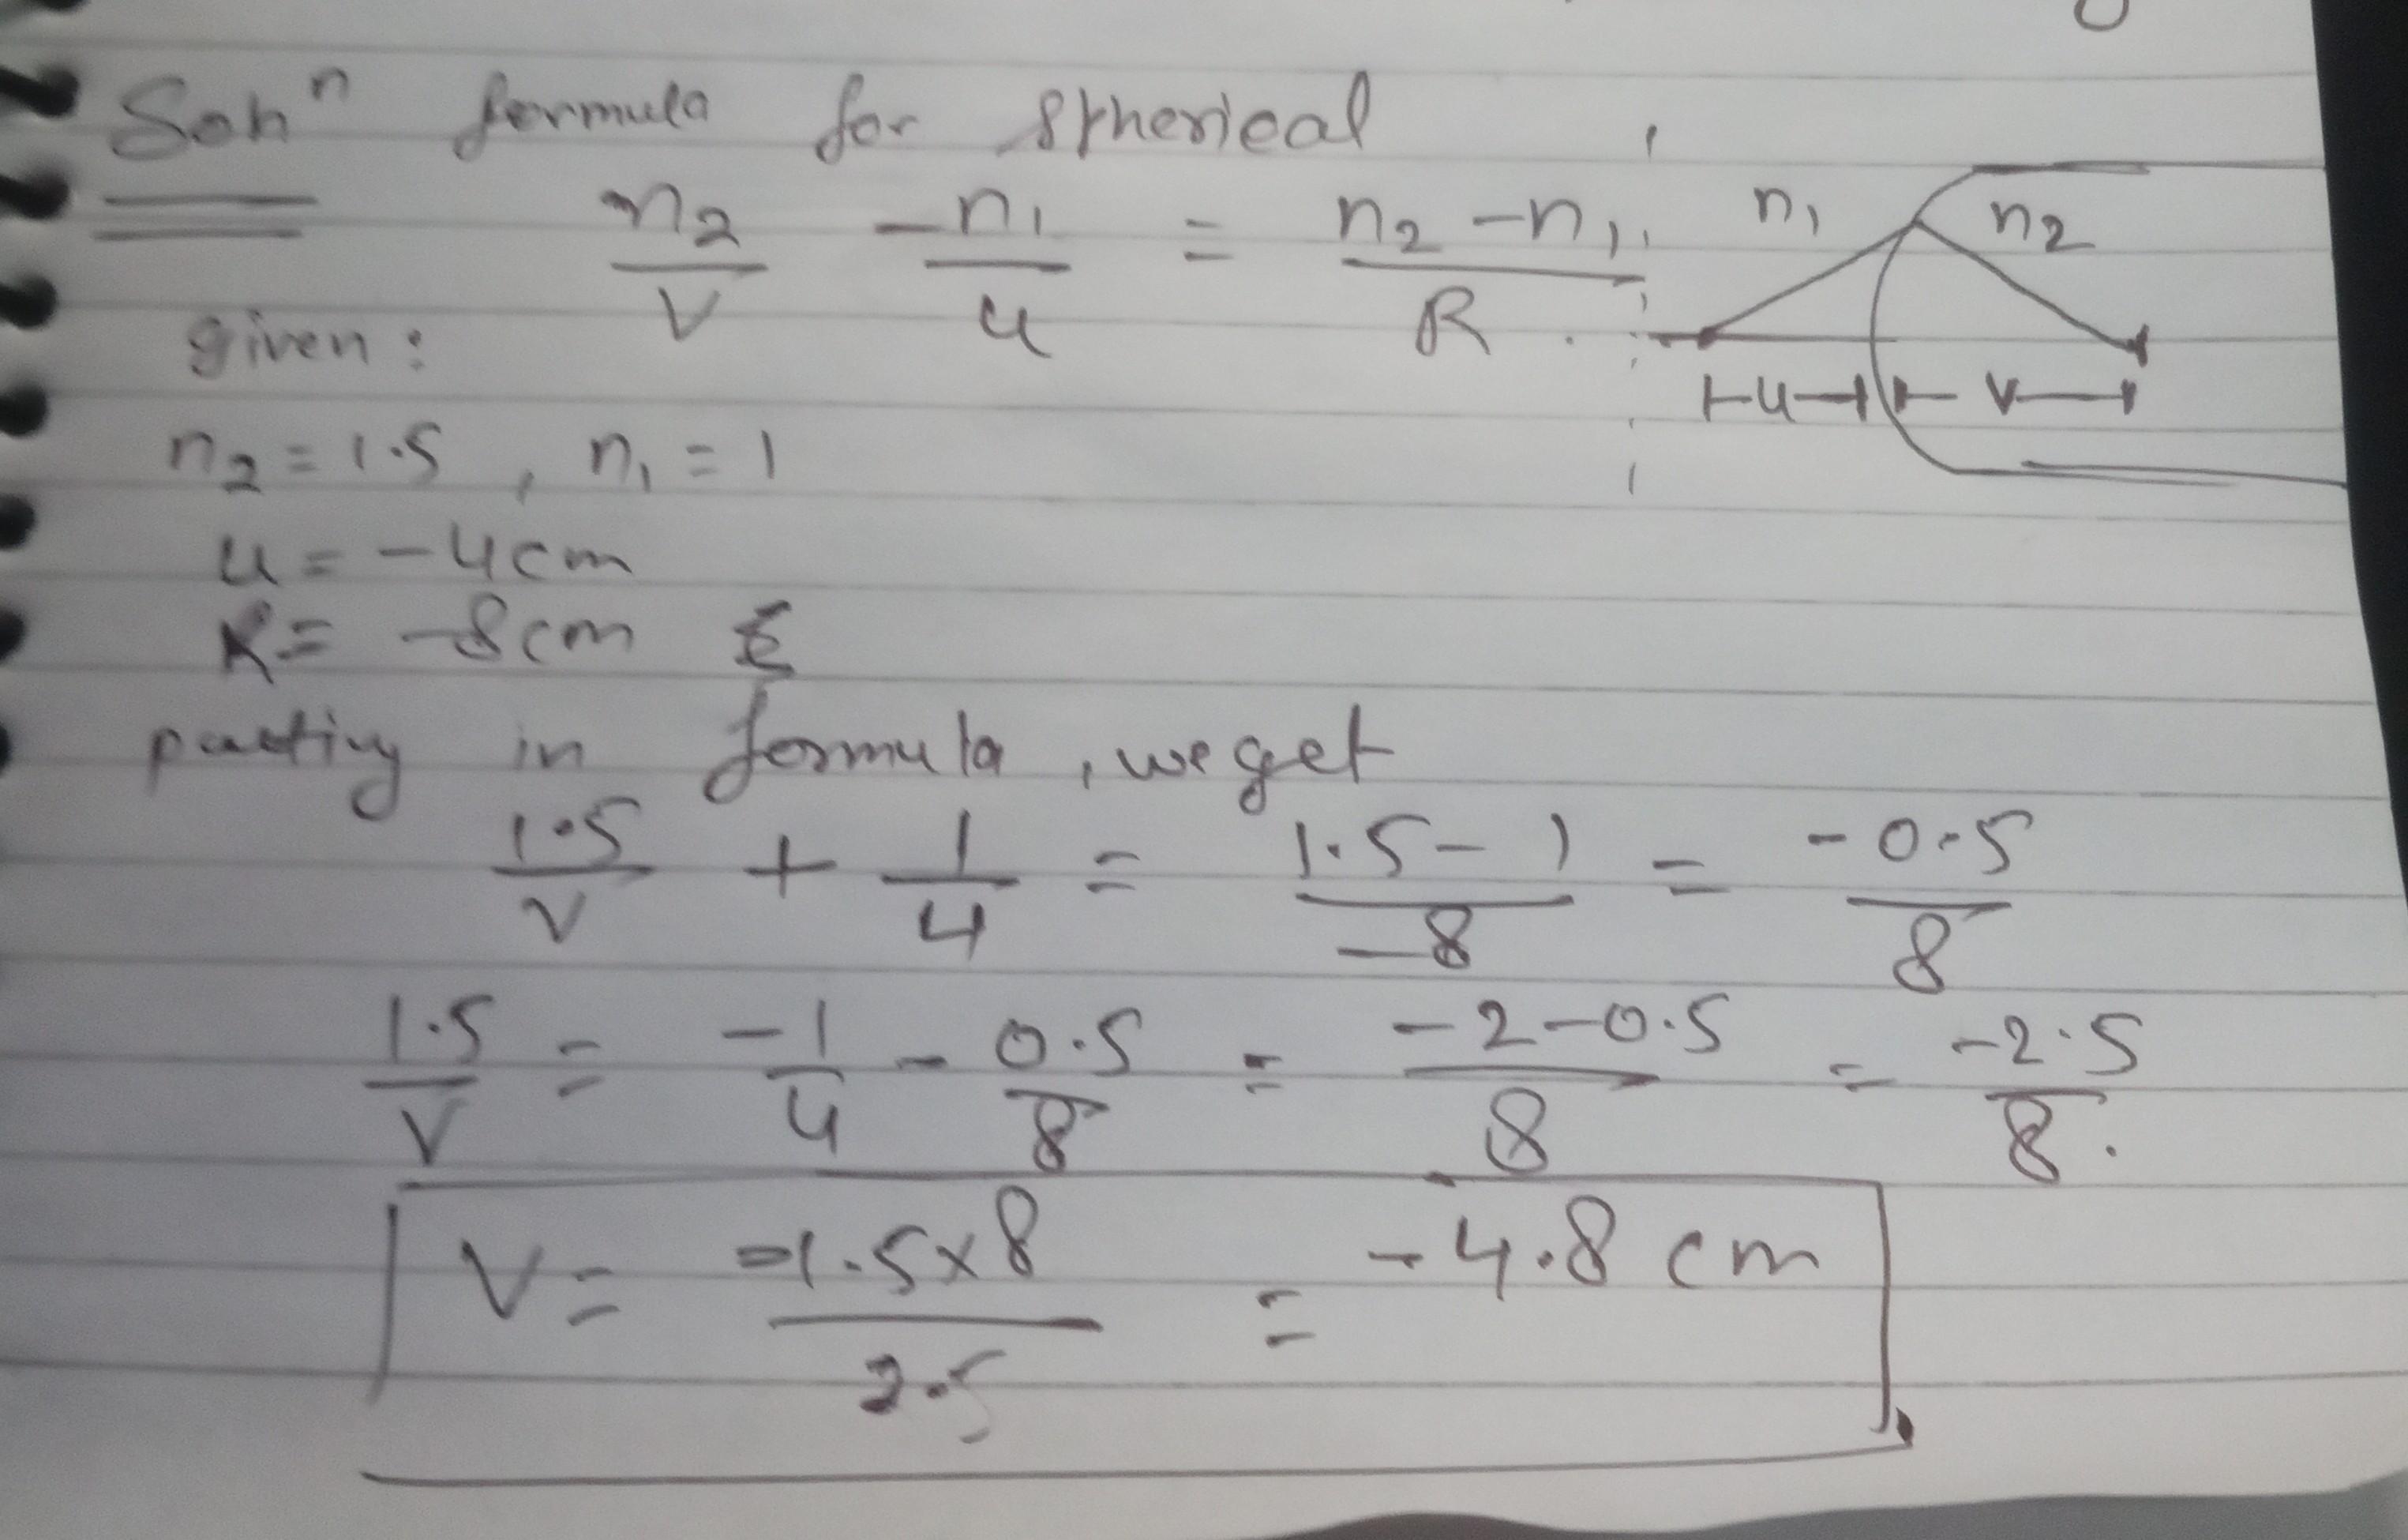 Solⁿ formula for Spherical
n₂/V - n₁/u = n₂ - n₁/R
n₁ n₂
u v
given:
n₂ = 1.5, n₁ = 1
u = -4cm
R = -8cm
putting in formula, we get
1.5/V + 1/4 = 1.5 - 1/-8 = -0.5/8
1.5/V = -1/4 - 0.5/8 = -2-0.5/8 = -2.5/8.
V = -1.5×8/2.5 = -4.8 cm